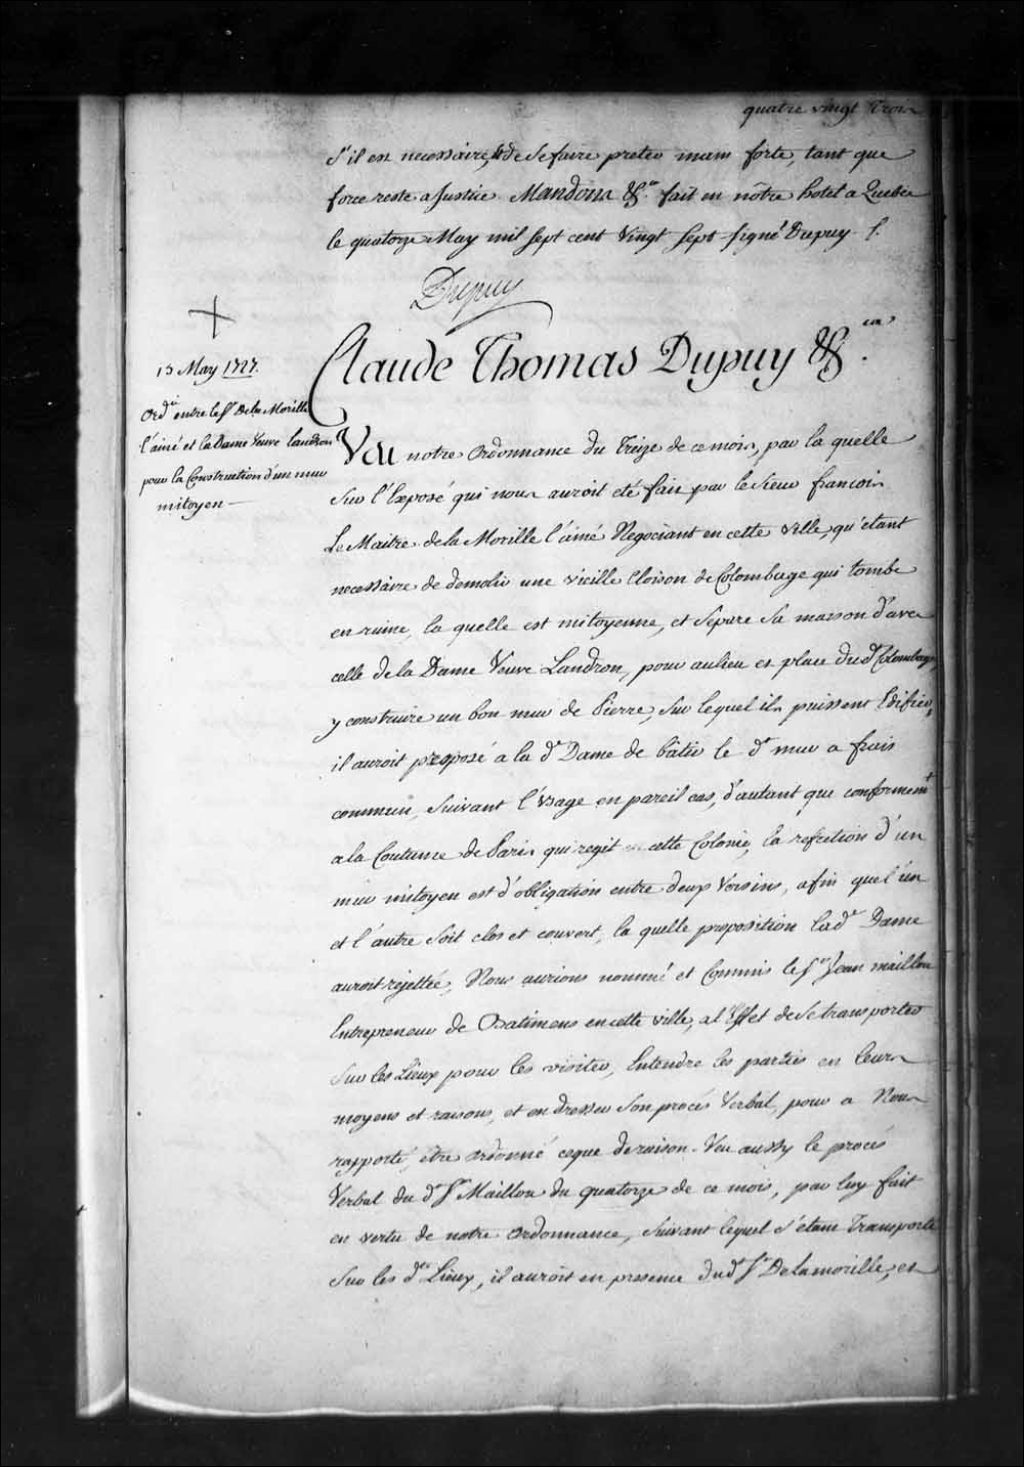 quatre vingt trois
s'il est necessaire, et de se faire preter main forte, tant que
force reste a Justice. Mandons &ca. fait en nôtre hotel a Quebec
le quatorze May mil sept cent vingt sept signé Dupuy
Dupuy
Claude Thomas Dupuy &ca.
15 May 1727.
Ordce entre le Sr De la Morille
l'ainé et la Dame Veuve landron
pour la Construction d'un mur
mitoyen
Veu notre Ordonnance du treize de ce mois, par la quelle
sur l'Exposé qui nous auroit eté fait par le Sieur francois
Le Maitre de la Morille l'ainé Negociant en cette ville, qu'étant
necessaire de demolir une vieille Cloison de Colombage qui tombe
en ruine, la quelle est mitoyenne, et separe sa maison d'avec
celle de la Dame Veuve Landron, pour au lieu et place dud. Colombage
y construire un bon mur de Pierre, sur lequel ils puissent Edifier,
il auroit proposé a la de Dame de bâtir le d. mur a frais
commun, suivant l'Usage en pareil cas, d'autant que conformemt
a la Coutume de Paris qui regit cette Colonie, la refection d'un
mur mitoyen est d'obligation entre deux Voisins, afin que l'un
et l'autre soit clos et couvert, la quelle proposition lade Dame
auroit rejettée, Nous aurions nommé et Commis le Sr Jean maillou
Entrepreneur de Batimens en cette ville, a l'Effet de se transporter
sur les Lieux pour les visiter, Entendre les parties en leurs
moyens et raisons, et en dresser son procés Verbal, pour a Nous
rapporté, etre ordonné ce que de raison. Veu aussy le procés
Verbal du d. Sr Maillou du quatorze de ce mois, par luy fait
en vertu de notre Ordonnance, suivant lequel s'étant Transporté
sur les dts Lieux, il auroit en presence dud. Sr Delamorille, et